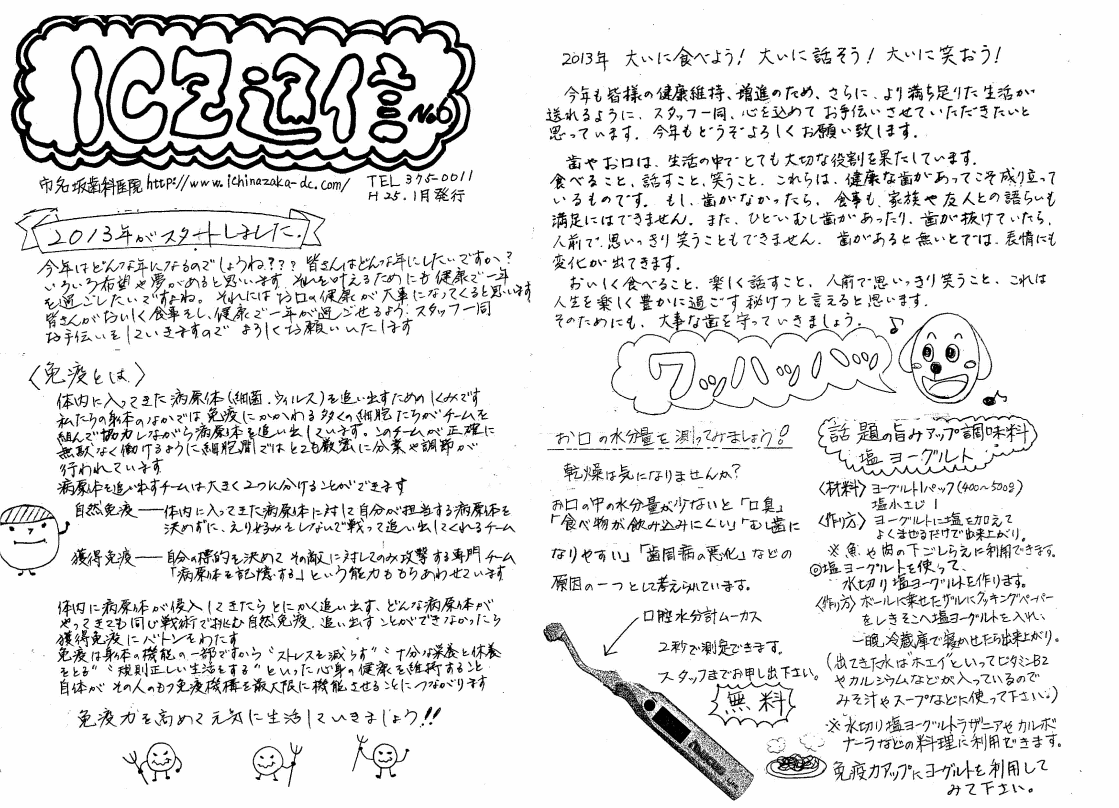 ICZ通信 No.6
市名坂歯科医院 http://www.ichinazaka-dc.com/ TEL 375-0011
H25.1月発行
2013年がスタートしました。
今年はどんな年になるのでしょうね？？？ 皆さんはどんな年にしたいですか？
いろいろ希望や夢があると思います それを叶えるためにも健康で一年
を過ごしたいですよね。それにはお口の健康が大事になってくると思います
皆さんがおいしく食事をし、健康で一年が過ごせるよう、スタッフ一同
お手伝いをしていきますので よろしくお願いいたします
〈免疫とは〉
体内に入ってきた病原体(細菌、ウィルス)を追い出すためのしくみです
私たちの身体のなかでは免疫にかかわる多くの細胞たちがチームを
組んで協力しながら病原体を追い出しています。このチームが正確に
無駄なく働けるように細胞間ではとても厳密に分業や調節が
行われています
病原体を追い出すチームは大きく2つに分けることができます
自然免疫―体内に入ってきた病原体に対して自分が担当する病原体を
決めずに、えりごのみをしないで戦って追い出してくれるチーム
獲得免疫―自分の標的を決めて その敵に対してのみ攻撃する専門チーム
「病原体を記憶する」という能力をもちあわせています
体内に病原体が侵入してきたらとにかく追い出す、どんな病原体が
やってきても同じ戦術で挑む自然免疫、追い出すことができなかったら
獲得免疫にバトンをわたす
免疫は身体の機能の一部ですから“ストレスを減らす”“十分な栄養と休養
をとる”“規則正しい生活をする”といった心身の健康を維持すること
自体が その人のもつ免疫機構を最大限に機能させることにつながります
免疫力を高めて元気に生活していきましょう!!
2013年 大いに食べよう! 大いに話そう! 大いに笑おう!
今年も皆様の健康維持、増進のため、さらに、より満ち足りた生活が
送れるように、スタッフ一同、心を込めてお手伝いさせていただきたいと
思っています。今年もどうぞよろしくお願い致します。
歯やお口は、生活の中でとても大切な役割を果たしています。
食べること、話すこと、笑うこと、これらは、健康な歯があってこそ成り立って
いるものです。もし、歯がなかったら、食事も、家族や友人との語らいも
満足にはできません。また、ひどいむし歯があったり、歯が抜けていたら、
人前で思いっきり笑うこともできません。歯があると無いとでは、表情にも
変化が出てきます。
おいしく食べること、楽しく話すこと、人前で思いっきり笑うこと、これは
人生を楽しく豊かに過ごす秘けつと言えると思います。
そのためにも、大事な歯を守っていきましょう。
ワッハッハッ
お口の水分量を測ってみましょう！
乾燥は気になりませんか？
お口の中の水分量が少ないと「口臭」
「食べ物が飲み込みにくい」「むし歯に
なりやすい」「歯周病の悪化」などの
原因の一つとして考えられています。
口腔水分計ムーカス
2秒で測定できます。
スタッフまでお申し出下さい。
無料
話題の旨みアップ調味料
塩ヨーグルト
〈材料〉ヨーグルト1パック(400〜500g)
塩小エビ1
〈作り方〉ヨーグルトに塩を加えて
よくまぜるだけで出来上がり。
※魚や肉の下ごしらえに利用できます。
◎塩ヨーグルトを使って、
水切り塩ヨーグルトを作ります。
〈作り方〉ボールに乗せたザルにクッキングペーパー
をしきそこへ塩ヨーグルトを入れ、
一晩、冷蔵庫で寝かせたら出来上がり。
(出てきた水はホエイといってビタミンB2
やカルシウムなどが入っているので
みそ汁やスープなどに使って下さい。)
※水切り塩ヨーグルトラザニアやカルボ
ナーラなどの料理に利用できます。
免疫力アップにヨーグルトを利用して
みて下さい。